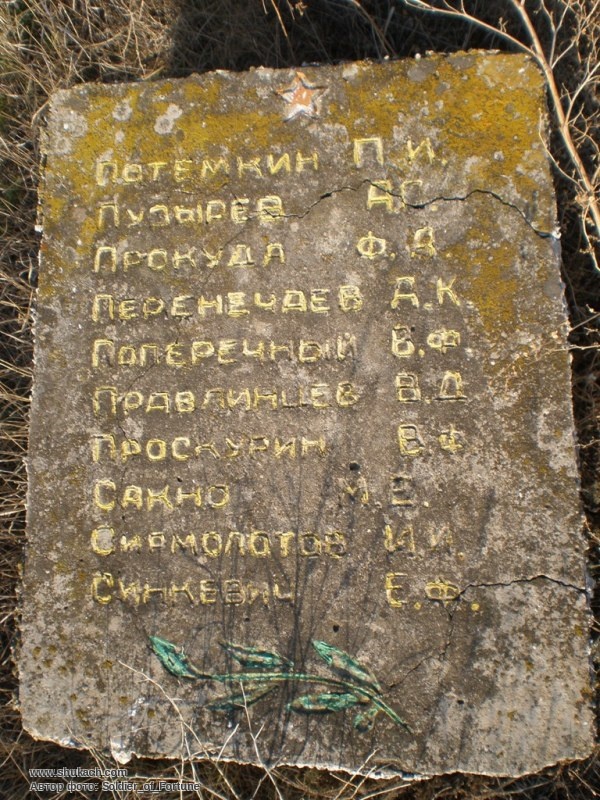 ПОТЕМКИН П.И.
ПУЗЫРЕВ А.Г.
ПРОКУДА Ф.Д.
ПЕРЕНЕЧАЕВ Д.К
ПОПЕРЕЧНЫЙ В.Ф
ПРАВЛИНЦЕВ В.Д
ПРОСКУРИН В.Ф
САХНО М.Е.
СИРМОЛОТОВ И.И.
СИНКЕВИЧ Е.Ф.
www.shukach.com
Автор фото: Soldier_of_Fortune